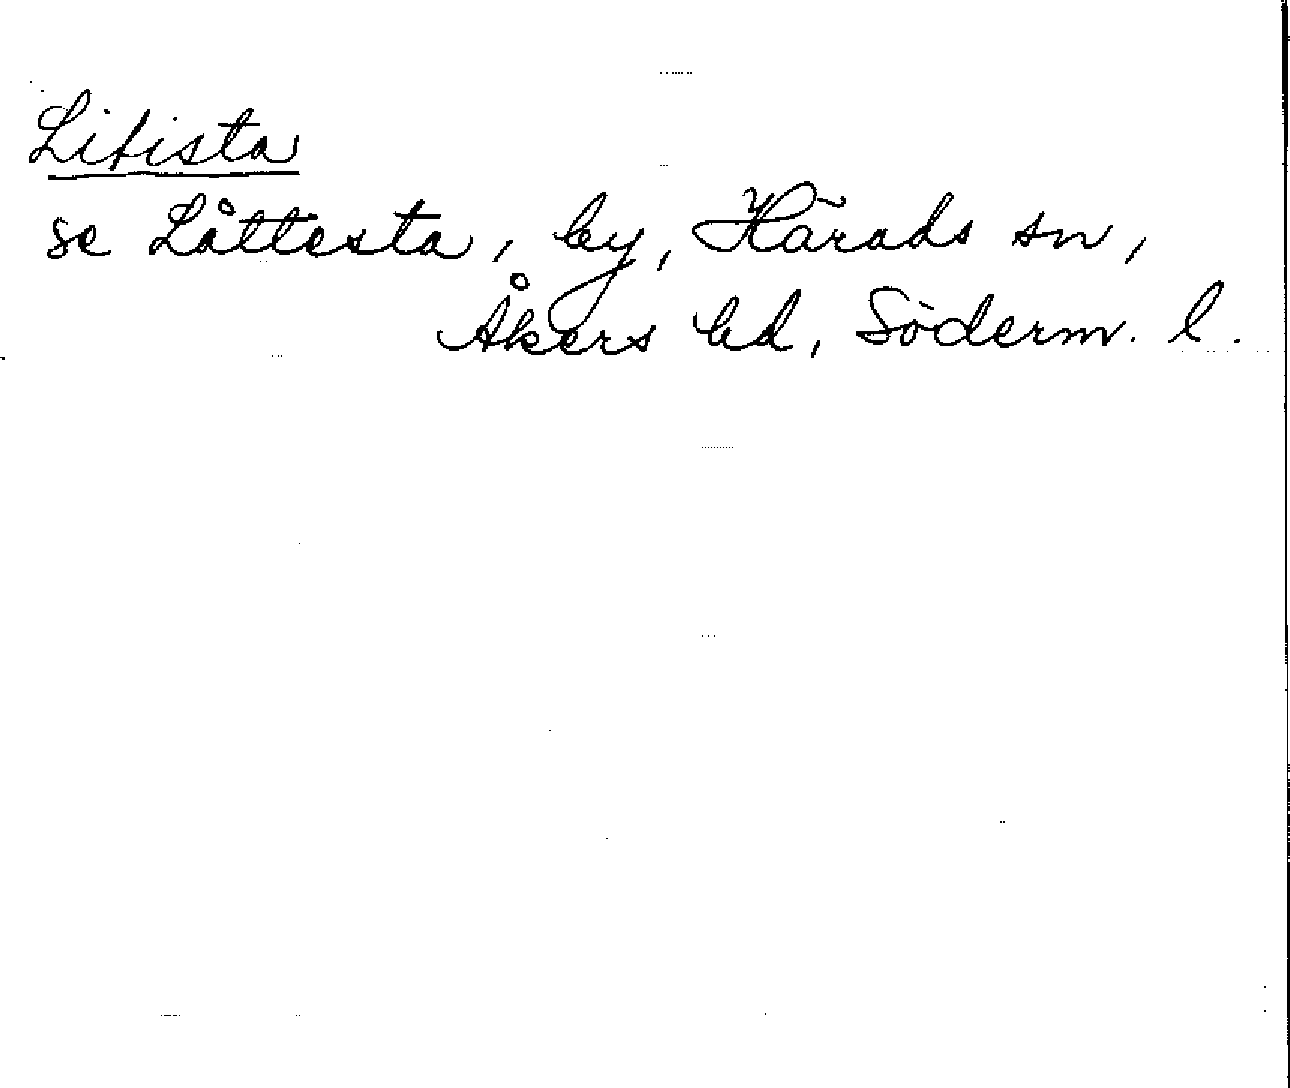 Lifista
se Låttesta, by, Härads sn,
Åkers hd, Söderm. l.